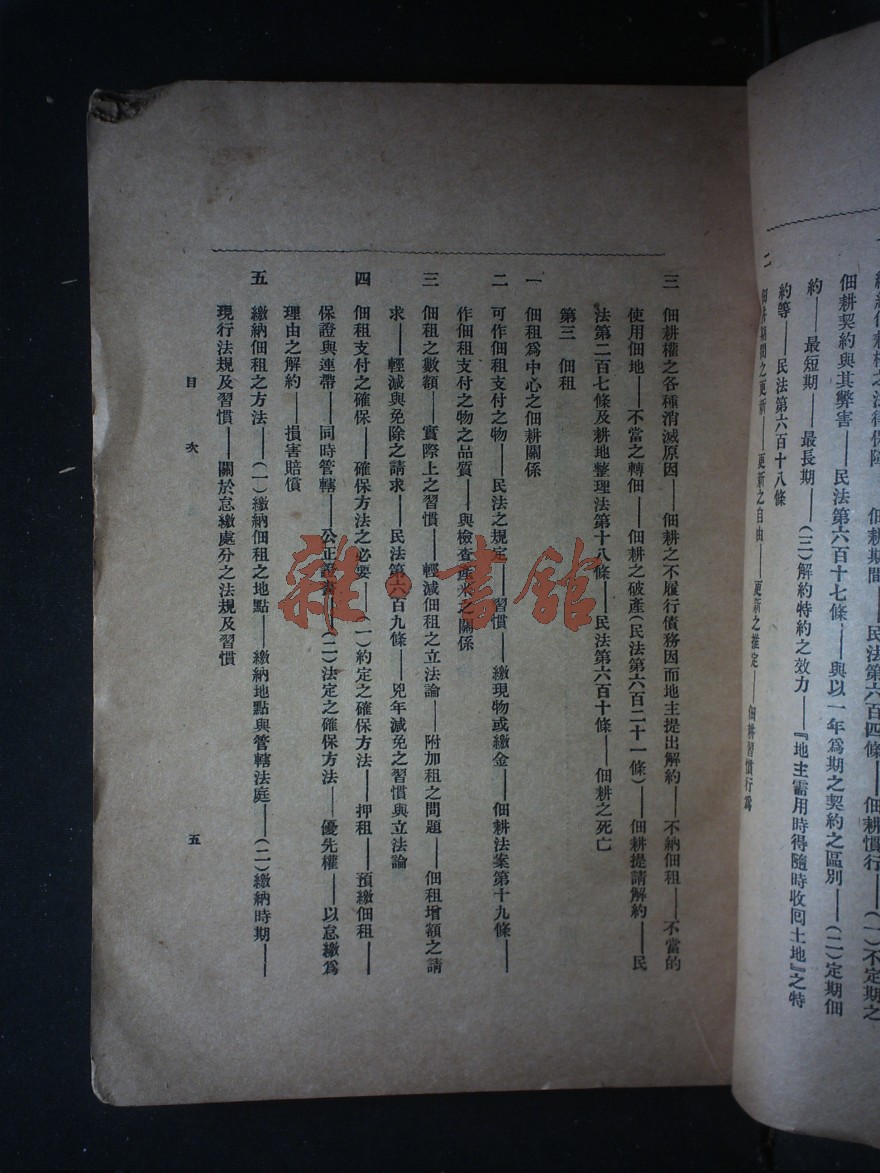 佃耕契約與其弊害——民法第六百十七條——與以一年爲期之契約之區別——(二)定期佃
約——最短期——最長期——(三)解約特約之效力——『地主需用時得隨時收回土地』之特
約等——民法第六百十八條
二 佃耕期間之更新——更新之自由——更新之推定——佃耕習慣行爲
三 佃耕權之各種消滅原因——佃耕之不履行債務因而地主提出解約——不納佃租——不當的
使用佃地——不當之轉佃——佃耕之破產(民法第六百二十一條)——佃耕提請解約——民
法第二百七條及耕地整理法第十八條——民法第六百十條——佃耕之死亡
第三 佃租
一 佃租爲中心之佃耕關係
二 可作佃租支付之物——民法之規定——習慣——繳現物或繳金——佃耕法案第十九條——
作佃租支付之物之品質——與檢查產米之關係
三 佃租之數額——實際上之習慣——輕減佃租之立法論——附加租之問題——佃租增額之請
求——輕減與免除之請求——民法第六百九條——兇年減免之習慣與立法論
四 佃租支付之確保——確保方法之必要——(一)約定之確保方法——押租——預繳佃租——
保證與連帶——同時管轄——公正證書——(二)法定之確保方法——優先權——以怠繳爲
理由之解約——損害賠償
五 繳納佃租之方法——(一)繳納佃租之地點——繳納地點與管轄法庭——(二)繳納時期——
現行法規及習慣——關於怠繳處分之法規及習慣
目次 五
雜·書館